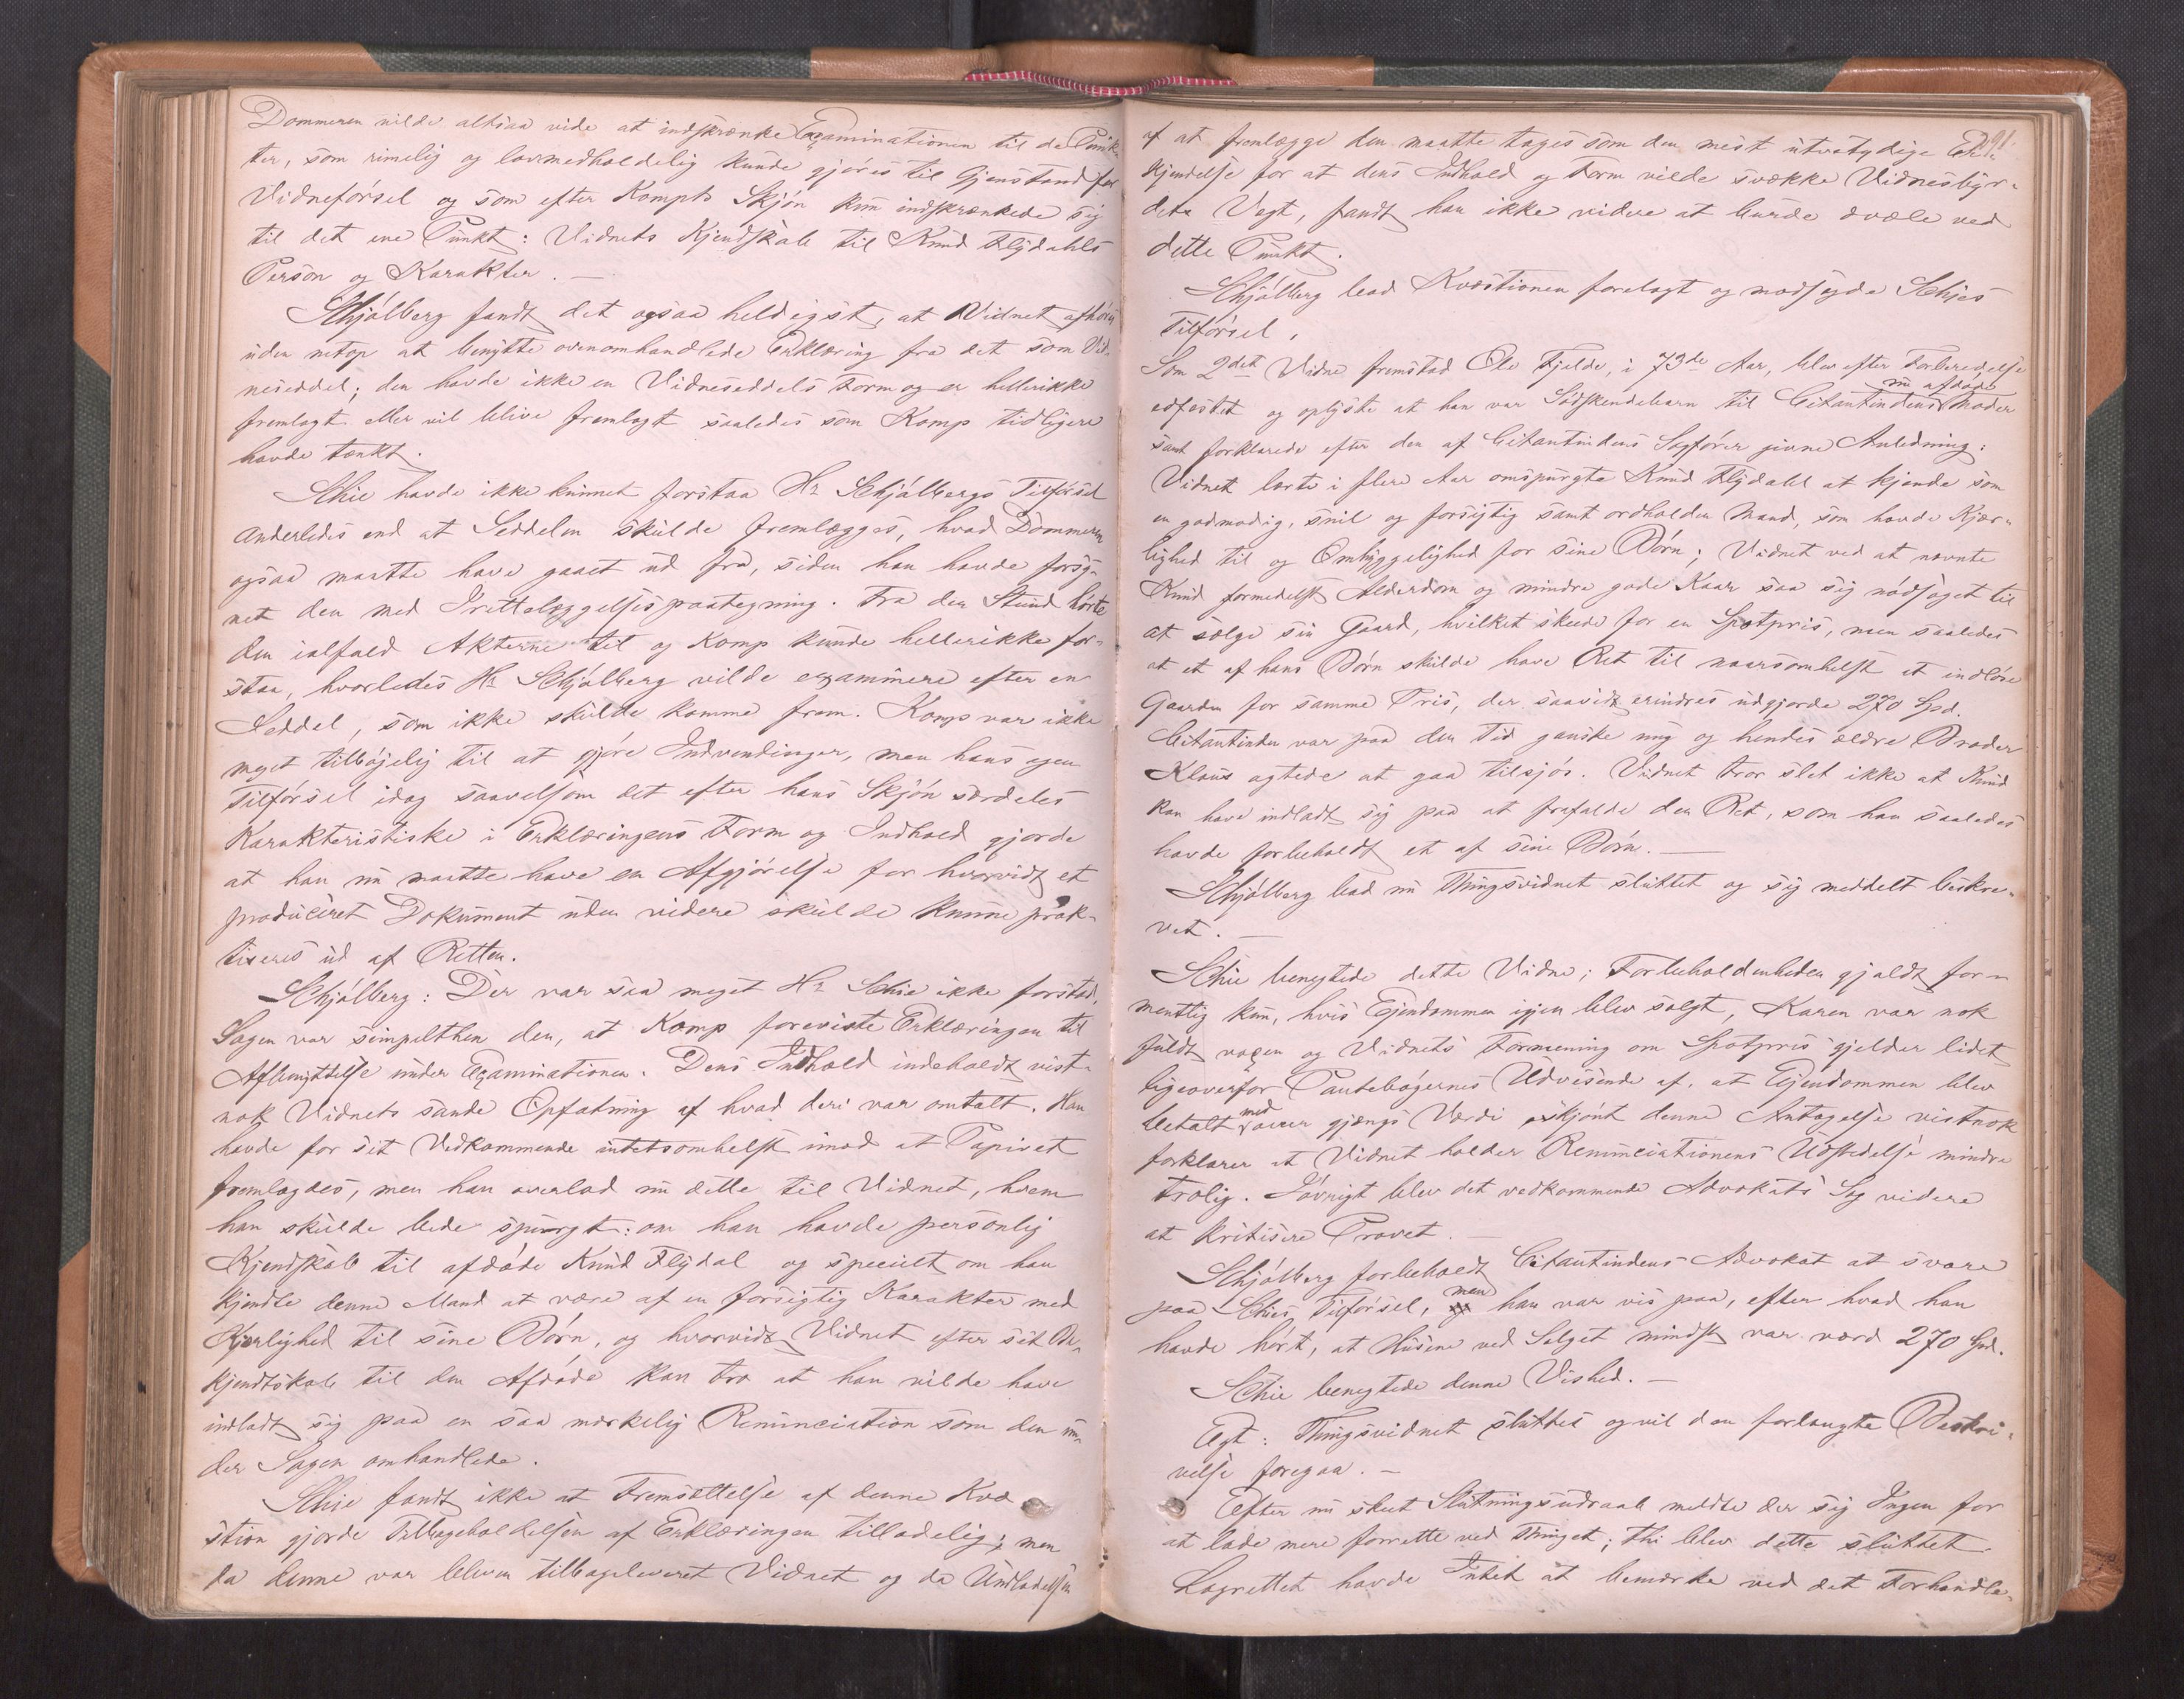 Dommeren vilde altsaa vide at indskrænke Examinationen til de Punk-
ter, som rimelig og lovmedholdelig kunde gjøres til Gjenstand for
Vidneførsel og som efter Kompts Skjøn kun indskrænkede sig
til det ene Punkt: Vidnets Kjendskab til Knud Flydahls
Person og Karakter. —
Schjølberg fandt det ogsaa heldigst, at Vidnet afhøres
uden netop at benytte ovenomhandlede Erklæring fra det som Vid-
neseddel; den havde ikke en Vidneseddels Form og er hellerikke
fremlagt eller vil blive fremlagt saaledes som Komp tidligere
havde tænkt.
Schie havde ikke kunnet forstaa Hr Schjølbergs Tilførsel
anderledes end at Seddelen skulde fremlægges, hvad Dommeren
ogsaa maatte have gaaet ud fra, siden han havde forsy-
net den med Irettelæggelsespaategning. Fra den Stund hørte
den ialfald Akterne til og Komp kunde hellerikke for-
staa, hvorledes Hr Schjølberg vilde examinere efter en
Seddel, som ikke skulde komme frem. Komp var ikke
meget tilbøjelig til at gjøre Indvendinger, men hans egen
Tilførsel idag saavelsom det efter hans Skjøn særdeles
Karakteristiske i Erklæringens Form og Indhold gjorde
at han nu maatte have en Afgjørelse for hvorvidt et
produceret Dokument uden videre skulde kunne prak-
tiseres ud af Retten.
Schjølberg: Der var saa meget Hr Schie ikke forstod,
Sagen var simpelthen den, at Komp foreviste Erklæringen til
Afbenyttelse under Examinationen. Dens Indhold indeholdt vist-
nok Vidnets sande Opfatning af hvad deri var omtalt. Han
havde for sit Vedkommende intetsomhelst imod at Papiret
fremlagdes, men han overlod nu dette til Vidnet, hvem
han skulde bede spurgt: om han havde personlig
Kjendskab til afdøde Knud Flydal og specielt om han
kjendte denne Mand at være af en forsigtig Karakter med
Kjærlighed til sine Børn, og hvorvidt Vidnet efter sit Be-
kjendtskab til den Afdøde kan tro at han vilde have
indladt sig paa en saa mærkelig Renunciation som den un-
der Sagen omhandlede.
Schie fandt ikke at Fremsættelse af denne Kvæ
stion gjorde Tilbageholdelsen af Erklæringen tilladelig; men
da denne var bleven tilbageleveret Vidnet og da Undladelsen
af at fremlægge den maatte tages som den mest utvetydige Er-
kjendelse for at dens Indhold og Form vilde svække Vidnesbyr-
dets Vegt, fandt han ikke videre at burde dvæle ved
dette Punkt.
Schjølberg bad Kvæstionen forelagt og modsagde Schies
Tilførsel.
Som 2det Vidne fremstod Ole Fjelde, i 73de Aar, blev efter Forberedelse
edfæstet og oplyste at han var Sødskendebarn til Citantindens nu afdøde Moder
samt forklarede efter den af Citantindens Sagfører givne Anledning:
Vidnet lærte i flere Aar omspurgte Knud Flydahl at kjende som
en godmodig, snil og forsigtig samt ordholden Mand, som havde Kjær-
lighed til og Omhyggelighed for sine Børn; Vidnet ved at nævnte
Knud formedelst Alderdom og mindre gode Kaar saa sig nødsaget til
at sælge sin Gaard, hvilket skede for en Spotpris, men saaledes
at et af hans Børn skulde have Ret til naarsomhelst at indløse
Gaarden for samme Pris, der saavidt erindres udgjorde 270 Spd.
Citantinden var paa den Tid ganske ung og hendes ældre Broder
Klaus agtede at gaa tilsjøs. Vidnet tror slet ikke at Knud
kan have indladt sig paa at frafalde den Ret, som han saaledes
havde forbeholdt et af sine Børn. —
Schjølberg bad nu Thingsvidnet sluttet og sig meddelt beskre-
vet. —
Schie benegtede dette Vidne; Forbeholdenheden gjaldt for-
mentlig kun, hvis Ejendommen igjen blev solgt, Karen var nok
fuldt voxen og Vidnets Formening om Spotpris gjelder lidet
ligeoverfor Pantebøgernes Udvisende af, at Ejendommen blev
betalt med over gjængs Værdi skjønt denne Antagelse vistnok
forklarer at Vidnet holder Renunciationens Udstedelse mindre
trolig. Iøvrigt blev det vedkommende Advokats Sag videre
at kritisere Provet. —
Schjølberg forbeholdt Citantindens Advokat at svare
paa Schies Tilførsel, men han var vis paa, efter hvad han
havde hørt, at Husene ved Salget mindst var værd 270 Spd.
Schie benegtede denne Vished. —
Egt: Thingsvidnet sluttes og vil den forlangte Beskri-
velse foregaa. —
Efter nu skeet Slutningsudraab meldte der sig Ingen for
at lade mere forrette ved Thinget; thi blev dette sluttet.
Lagrettet havde Intet at bemærke ved det Forhandle-